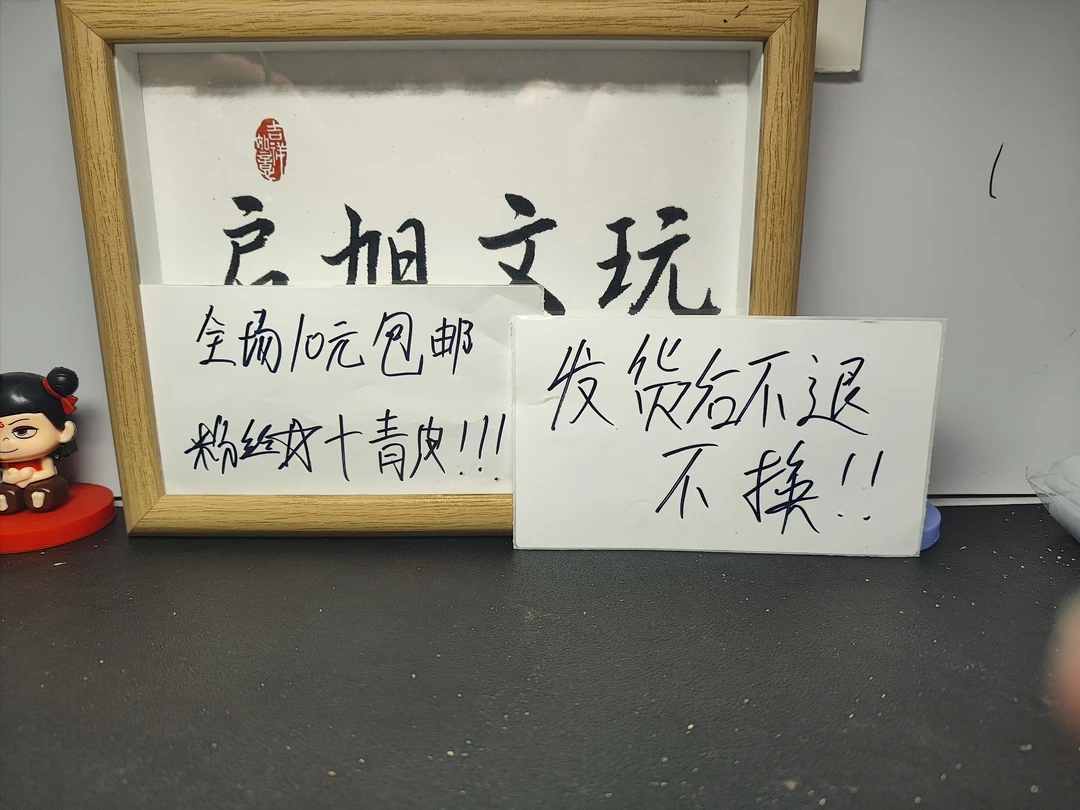 吉祥
如意
启旭文玩
全场10元包邮
粉丝女十青皮!!!
发货后不退
不换!!